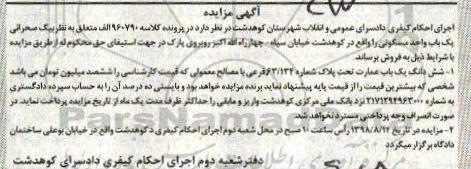 آگهی مزایده
اجرای احکام کیفری دادسرای عمومی و انقلاب شهرستان کوهدشت در نظر دارد در پرونده کلاسه ۹۶۰۷۹۰الف متعلق به نظر بیک صحرائی
یک باب واحد مسکونی را واقع در کوهدشت خیابان سپاه - چهارراه الله اکبر روبروی پارک در جهت استیفای حق محکوم له از طریق مزایده
با شرایط ذیل به فروش برساند.
۱- شش دانگ یک باب عمارت تحت پلاک شماره ۶۳/۱۳۴فرعی با مصالح معمولی که قیمت کارشناسی را ششصد میلیون تومان می باشد
شخصی که بیشترین قیمت را از قیمت پایه پیشنهاد نماید برنده مزایده خواهد بود و بایستی ده درصد آن را به حساب سپرده دادگستری
به شماره نزد بانک ملی مرکزی کوهدشت واریز و مابقی را حداکثر ظرف مدت یک ماه از تاریخ مزایده پرداخت نماید. در
صورت انصراف وجه پرداختی مسترد نخواهد شد.
۲- مزایده در تاریخ ۱۳۹۸/۸/۱۲ رأس ساعت ۱۰ صبح در محل شعبه دوم اجرای احکام کیفری د کوهدشت واقع در خیابان بوعلی ساختمان
دادگاه برگزار میگردد
دفتر شعبه دوم اجرای احکام کیفری دادسرای کوهدشت